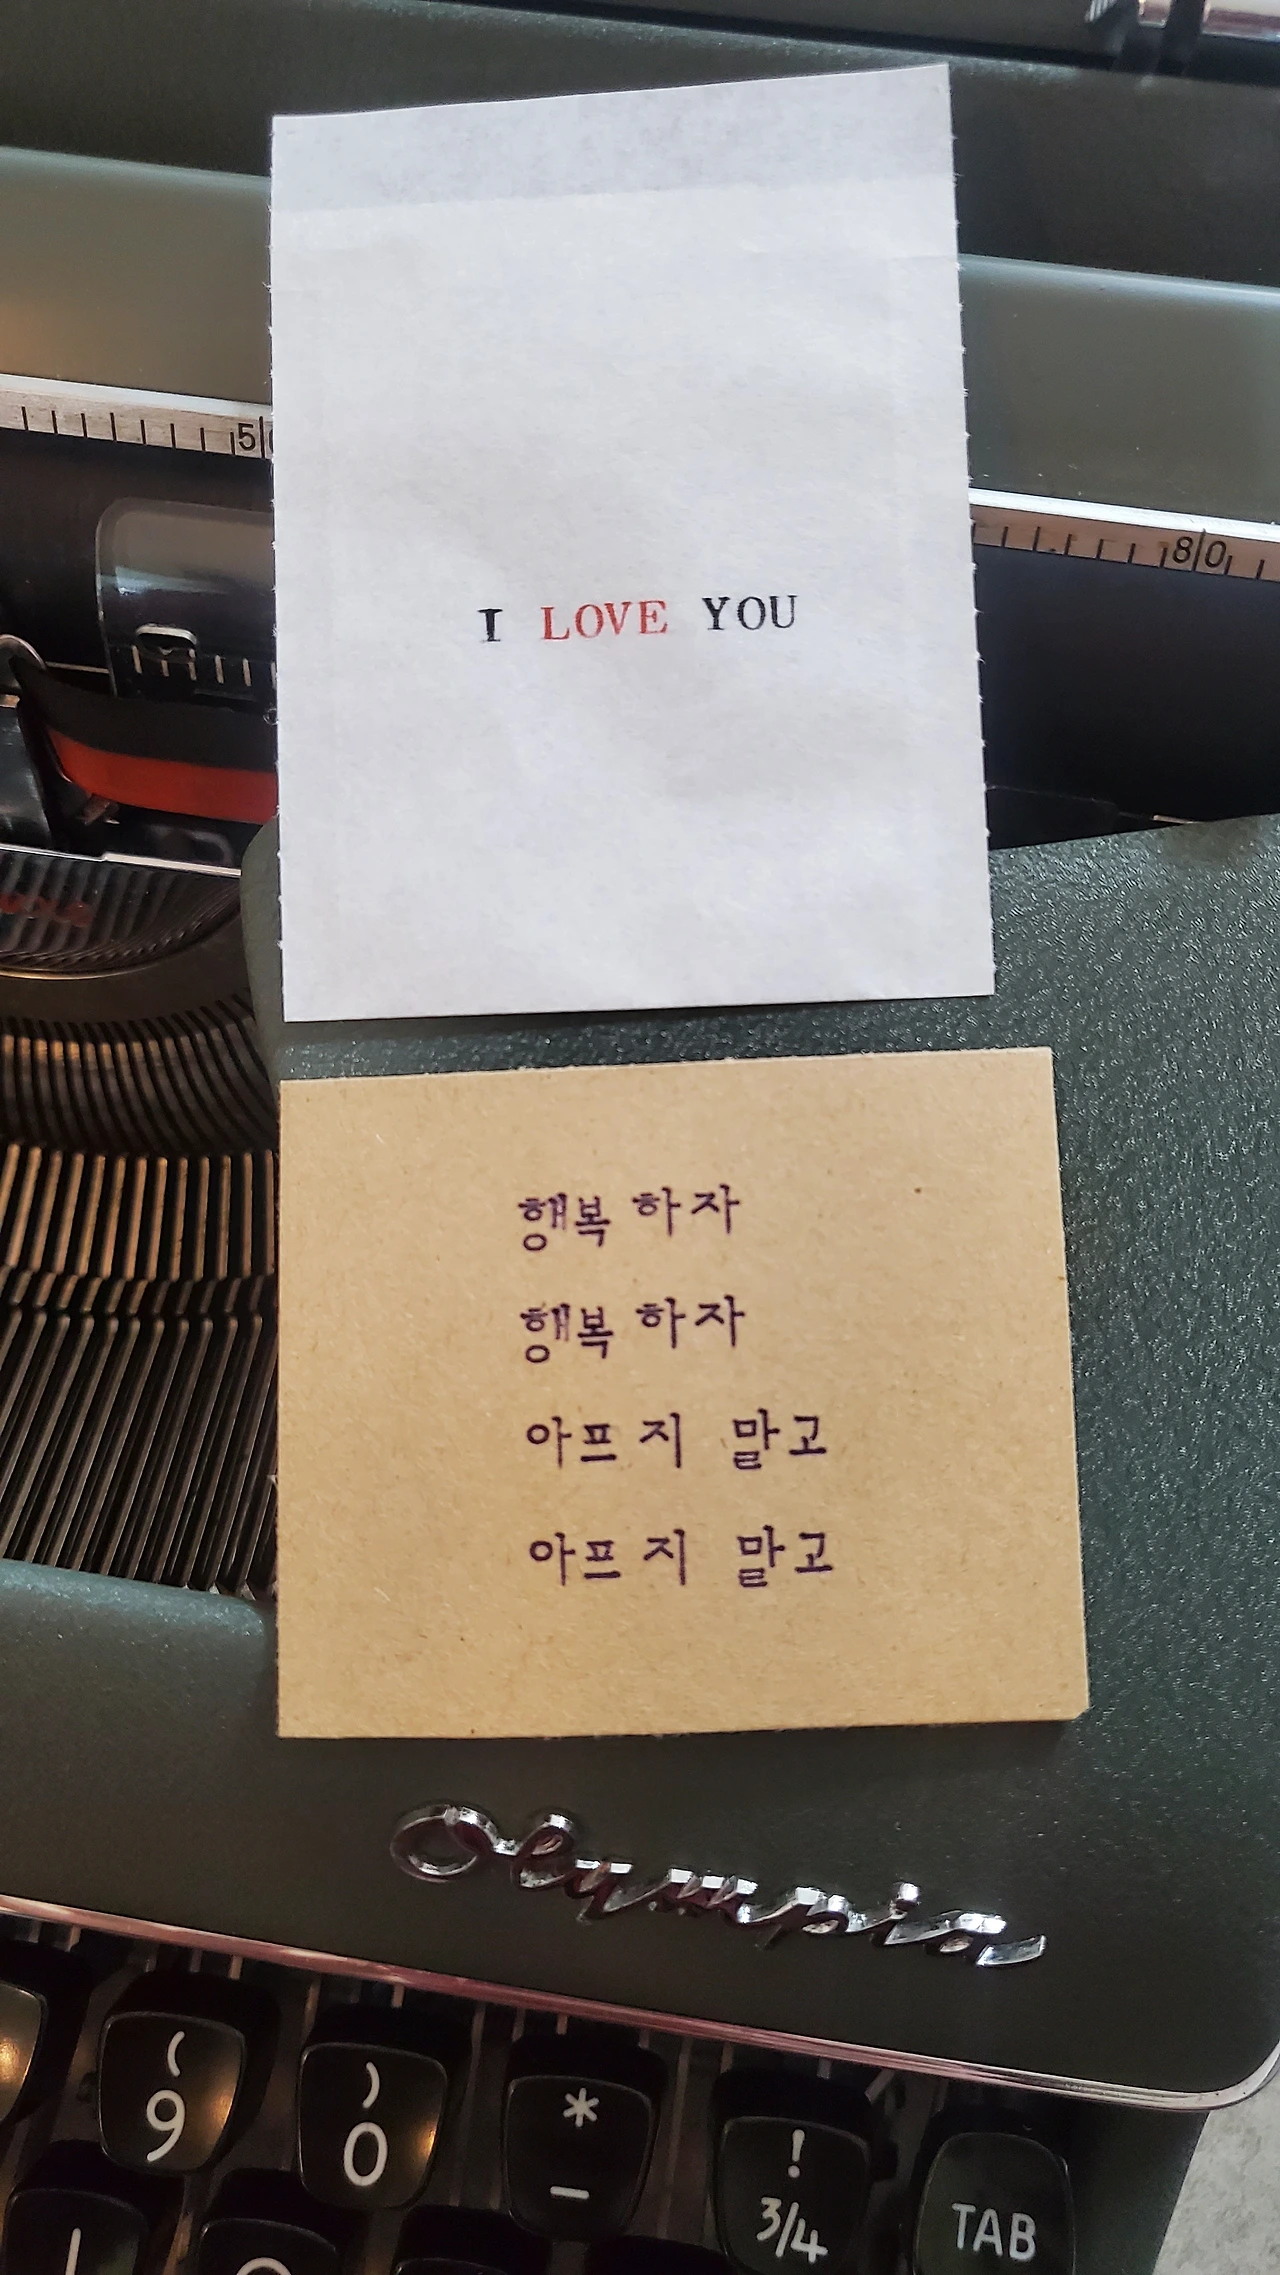 50
80
I LOVE YOU
행복하자
행복하자
아프지 말고
아프지 말고
Olympia
( ) * !
9 0 _ 3/4 TAB